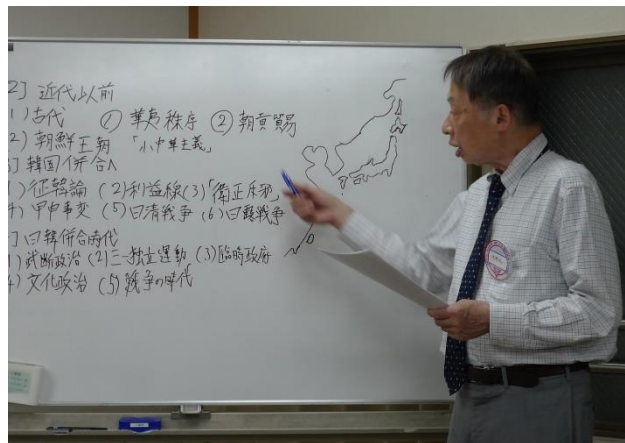 2] 近代以前
1) 古代 ① 華夷秩序 ② 朝貢貿易
2) 朝鮮王朝 「小中華主義」
3] 韓国併合へ
1) 征韓論 (2) 利益線 (3) 「衛正斥邪」
4) 甲申事変 (5) 日清戦争 (6) 日露戦争
] 日韓併合時代
1) 武断政治 (2) 三一独立運動 (3) 臨時政府
4) 文化政治 (5) 戦争の時代